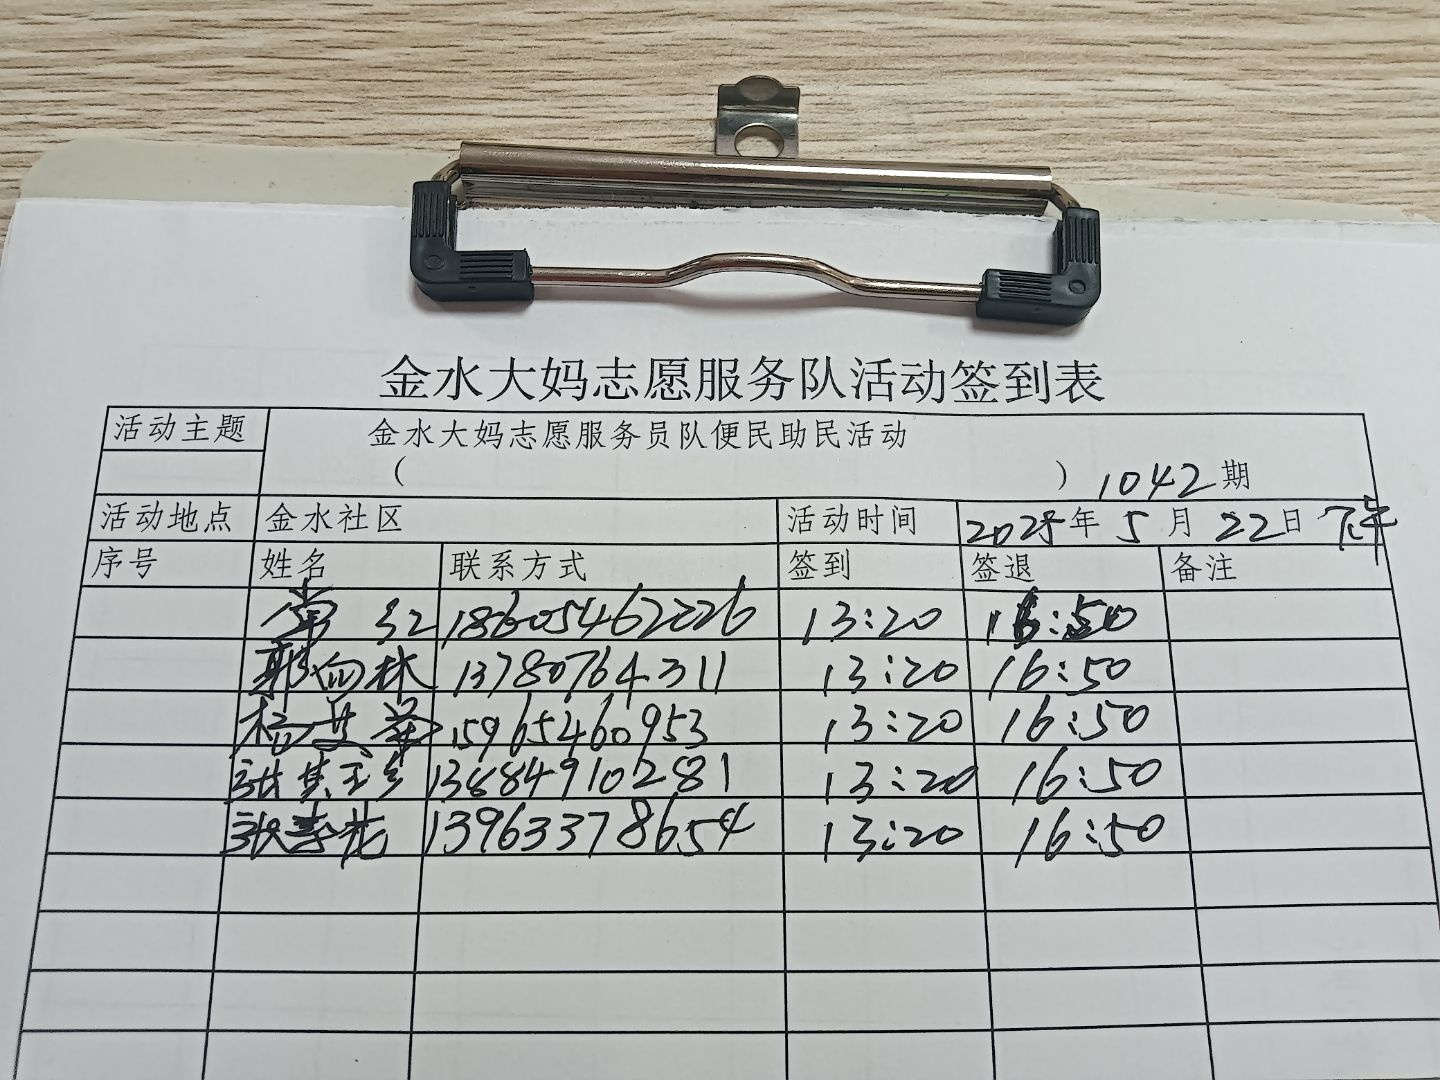 金水大妈志愿服务队活动签到表
活动主题 金水大妈志愿服务员队便民助民活动
( ) 1042期
活动地点 金水社区 活动时间 2025年 5月 22日 下午
序号 姓名 联系方式 签到 签退 备注
常红 18605462226 13:20 16:50
郭向林 13780764311 13:20 16:50
杨 15965460953 13:20 16:50
张 13884910281 13:20 16:50
张 花 13963378654 13:20 16:50